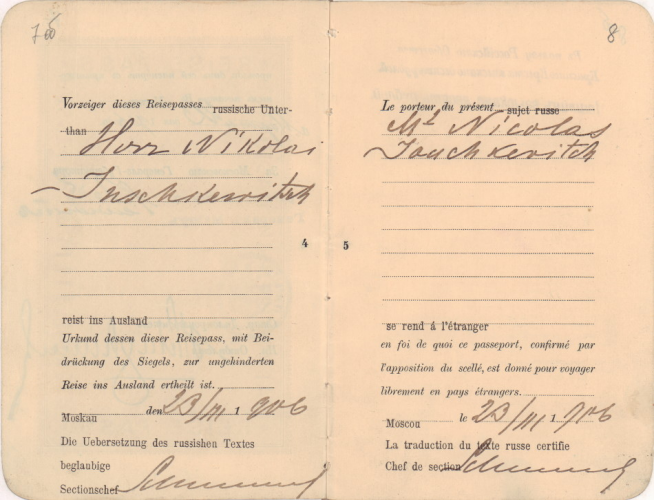 7
Vorzeiger dieses Reisepasses russische Unter-
than Herr Nikolai
Juschkewitsch
4
reist ins Ausland
Urkund dessen dieser Reisepass, mit Bei-
drückung des Siegels, zur ungehinderten
Reise ins Ausland ertheilt ist.
Moskau den 23/III 1906
Die Uebersetzung des russishen Textes
beglaubige
Sectionschef
8
Le porteur du présent sujet russe
Mr Nicolas
Jouchkevitch
5
se rend á l'étranger
en foi de quoi ce passeport, confirmé par
l'apposition du scellé, est donné pour voyager
librement en pays étrangers.
Moscou le 23/III 1906
La traduction du texte russe certifie
Chef de section